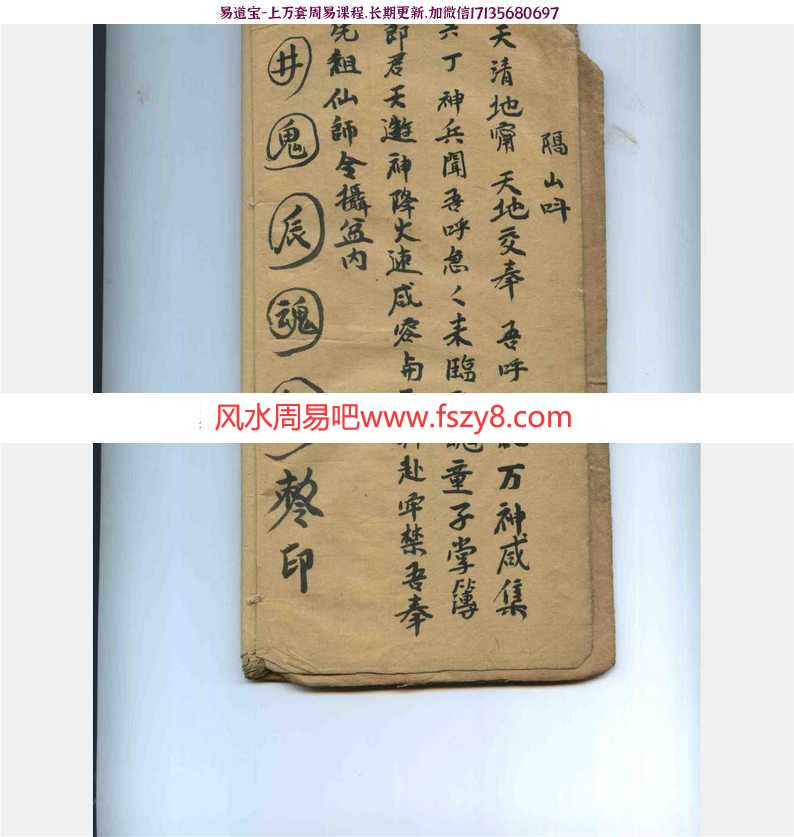 易道宝-上万套周易课程.长期更新.加微信17135680697
隔山呌
天清地甯 天地交奉 吾呼 万神咸集
六丁神兵聞吾呼急々来臨 童子掌簿
郎君天遊神降火速咸容 赴 禁吾奉
先祖仙師令攝盆内
井 鬼 辰 魂 印
风水周易吧www.fszy8.com